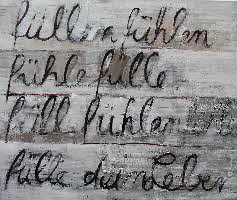 füllen fühlen
fühle fülle
füll fühlen
fülle dein Leben